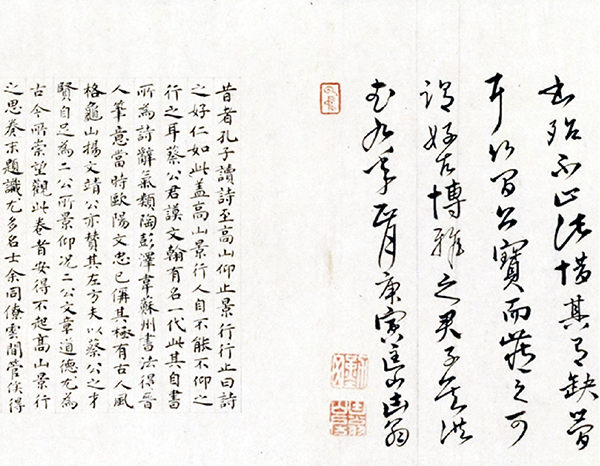 殆不止法惜其有缺
耳公寶而藏之可
謂好古博雅之君子矣洪
武九年正月庚寅匡山翁
昔者孔子讀詩至高山仰止景行行止曰詩
之好仁如此盖高山景行人自不能不仰之
行之耳蔡公君謨文翰有名一代此其自書
所為詩辭氣類陶彭澤韋蘇州書法得晉
人筆意當時歐陽文忠已偁其極有古人風
格龜山楊文靖公亦贊其左方夫以蔡公之才
賢自足為二公所景仰况二公文章道德尤為
古今所崇望觀此卷者安得不起高山景行
之思卷末題識尤多名士余同僚雲間管侯得